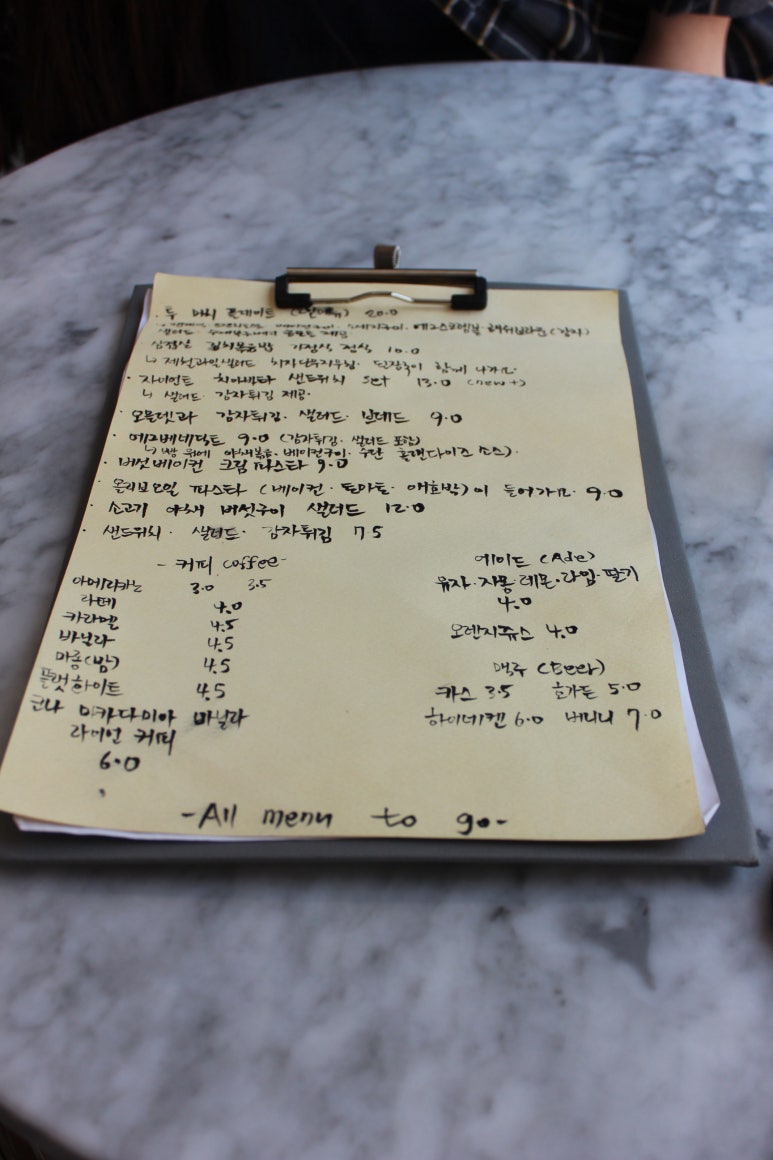 · 투 20.0
베이컨구이· 소세지구이· 에그스크램블· 해쉬브라운 (감자)
샐러드·
김치볶음밥 가정식 정식 10.0
ㄴ 제철과일샐러드 된장국이 함께 나가요
· 자이언트 치아바타 샌드위치 set 13.0 (new+)
ㄴ 샐러드· 감자튀김 제공·
· 오믈렛과 감자튀김· 샐러드· 브레드 9.0
· 에그베네딕트 9.0 (감자튀김· 샐러드 포함)
ㄴ 빵 위에 야채볶음· 베이컨구이· 수란 홀랜다이즈 소스)·
· 버섯베이컨 크림 파스타 9.0
· 올리브오일 파스타 (베이컨· 토마토· 애호박)이 들어가요· 9.0
· 소고기 야채 버섯구이 샐러드 12.0
· 샌드위치· 샐러드· 감자튀김 7.5
- 커피 coffee -
아메리카노 3.0 3.5
라떼 4.0
카라멜 4.5
바닐라 4.5
마롱(밤) 4.5
플랫화이트 4.5
코나 마카다미아 바닐라
라이언 커피
6.0
에이드 (Ade)
유자·자몽·레몬·라임·딸기
4.0
오렌지쥬스 4.0
맥주 (Beer)
카스 3.5 호가든 5.0
하이네켄 6.0 버니니 7.0
- All menu to go -